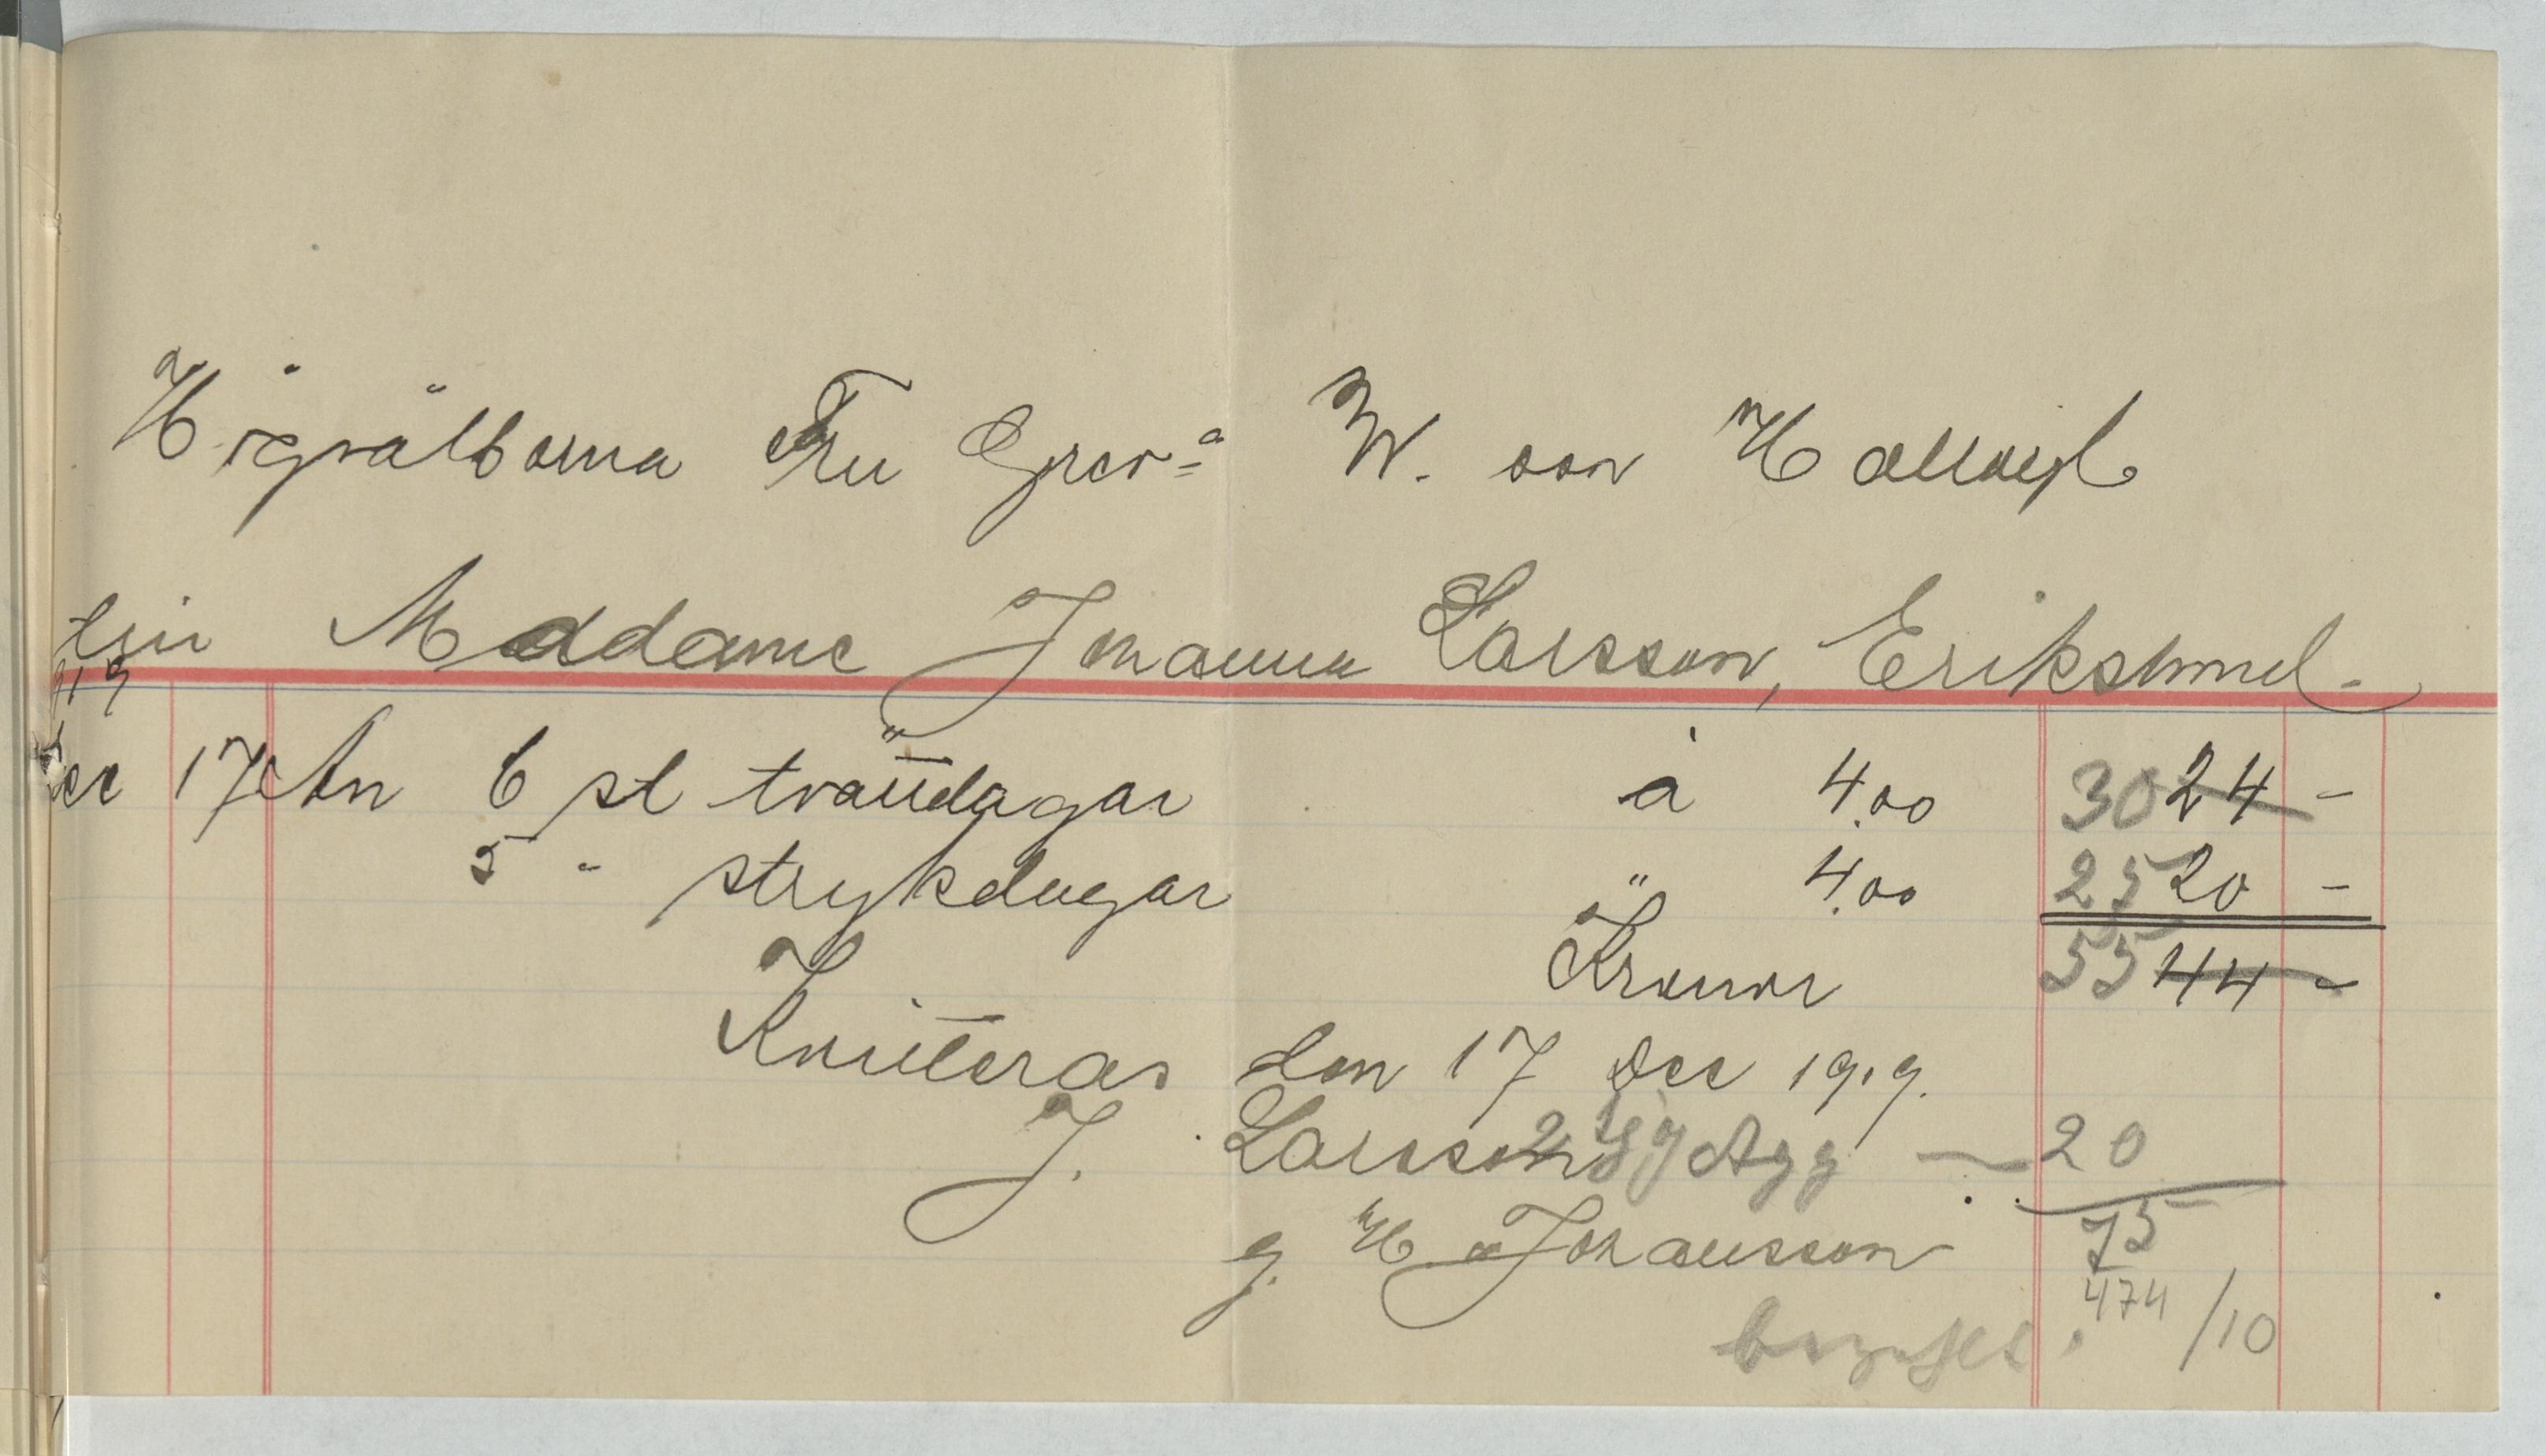 Högvälborna Fru Grev=a W. von Hallwyl
till Madame Johanna Larsson, Erikslund.
1919
Dec 17 An 6 st tvättdagar à 4.00 30 24 -
5 " strykdagar " 4.00 25 20 -
Kronor 55 44 -
Kvitteras den 17 Dec 1919.
J. Larsson 2 Agg — 20
g. H Johansson 75
474 /10